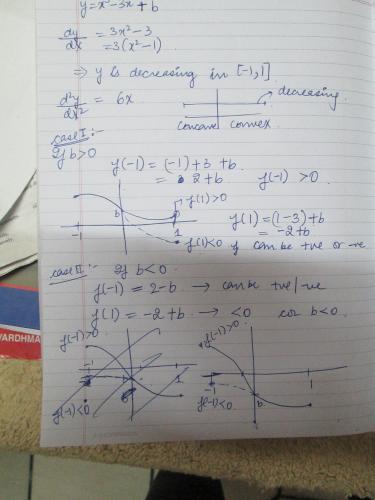 y = x³-3x + b
dy/dx = 3x²-3
= 3(x²-1)
⇒ y is decreasing in [-1,1]
d²y/dx² = 6x
decreasing
concave convex
case I:-
If b>0
y(-1) = (-1)+3 +b
= 2+b y(-1) >0
f(1)>0
b
-1
1
y(1) = (1-3)+b
= -2+b
f(1)<0 y can be +ve or -ve
case II:- If b<0
f(-1) = 2-b → can be +ve/-ve
f(1) = -2+b → <0 cor b<0.
f(-1)>0
-1
1
f(-1)<0
f(-1)>0
-1
1
b
f(-1)<0
VARDHMA